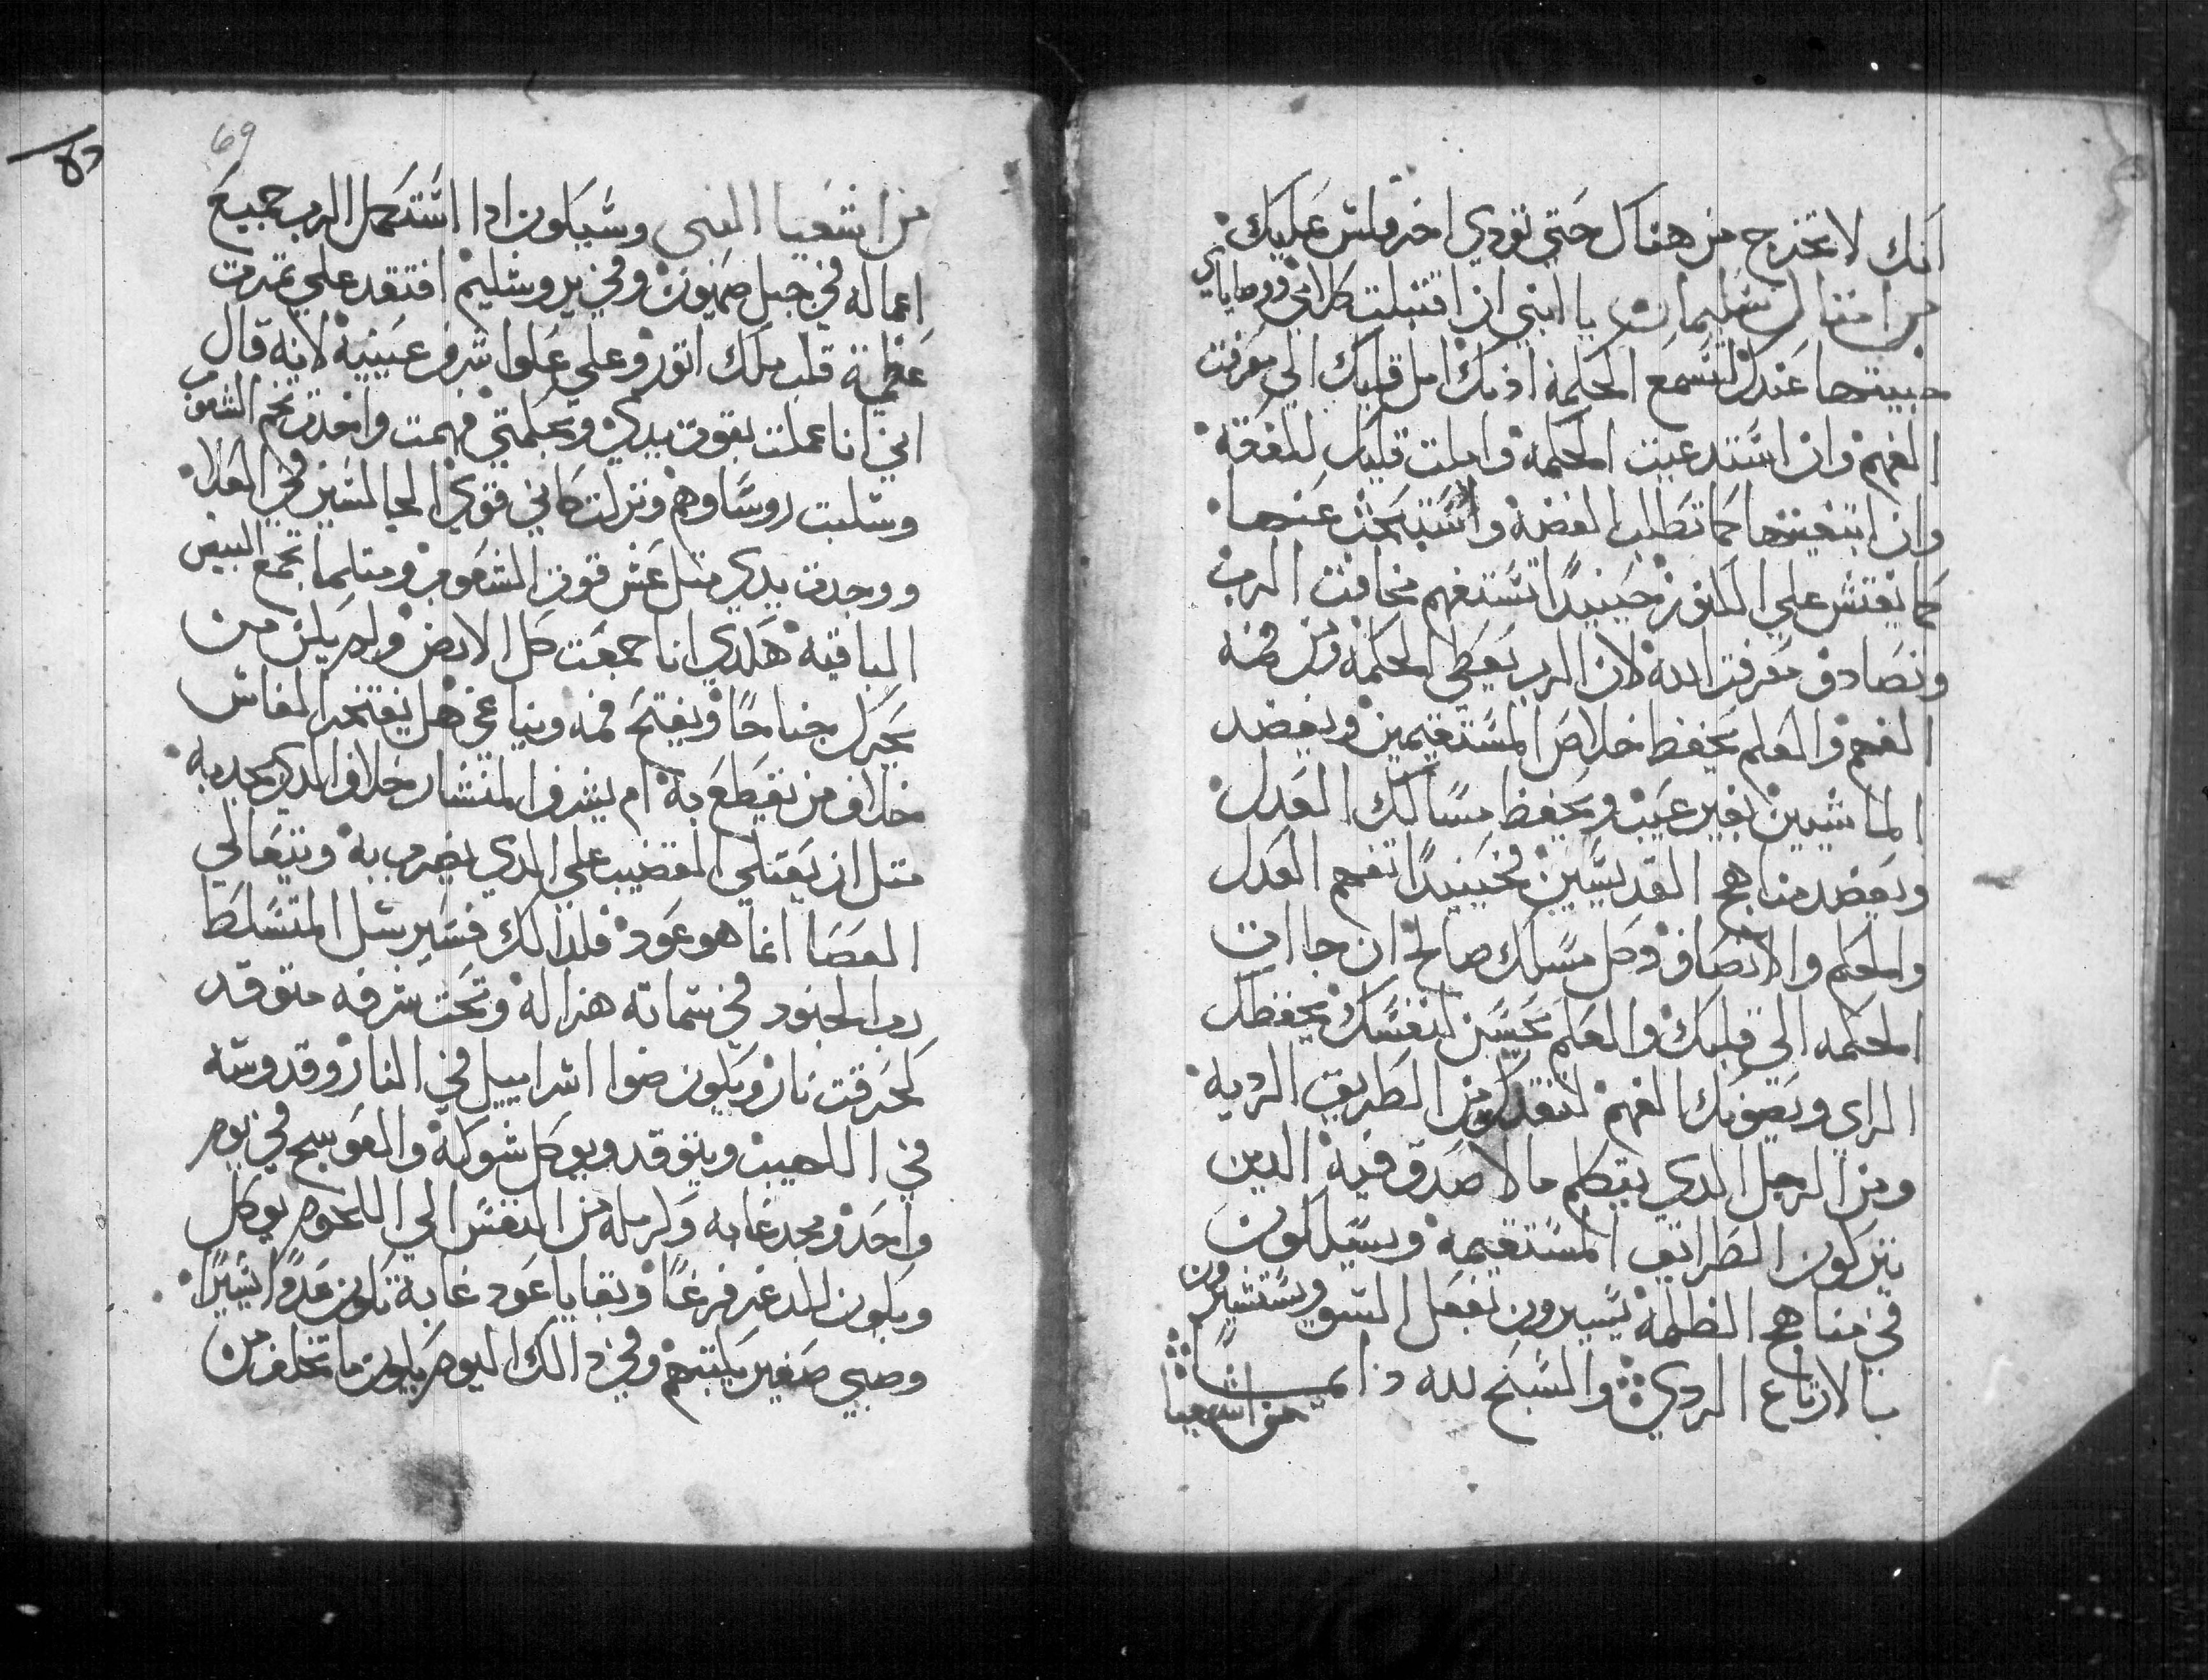 انك لا تخرج من هناك حتي تودي اخر فلس عليك
من امتال سليمان يا ابني ان اقتبلت كلامي ووصاياي
خبيتها عندك لتسمع الحكمة اذنك امل قلبك الي معرفت
الفهم وان استدعيت الحكمه واملت قلبك للمعرفه
وان ابتغيتها كما تطلب الفضه واستبحث عنها
كما يفتش علي الكنوز حينيدًا تستفهم مخافت الرب
وتصادف معرفت الله لان الرب يعطي الحكمه ومن فمه
الفهم والعلم يحفظ خلاص المستقيمين ويعضد
الماشيين بغير عيب ويحفظ مسالك العدل
ويعضد مناهج القديسين فحينيدًا تفهم العدل
والحكم والانصاف وكل مسلك صالح ان جاات
الحكمه الي قلبك والعلم يحسن لنفسك يحفظك
الراي ويصونك الفهم لتنقدك من الطريق الرديه
ومن الرجل الدي يتكلم ما لا صدق فيه الدين
يتركون الطرائق المستقيمه ويسلكون
في مناهج الظلمه يسيرون بفعل السو ويستشيرون
بالارتاع الردي والسبح لله دايمـــًا
من اشعيا
69
من اشعيا النبي وسيكون ادا استكمل الرب جميع
اعماله في جبل صهيون وفي يروشليم افتقد علي تمرت
عظمة قلب ملك اتور وعلي علوا شرف عينيه لانه قال
اني انا عملت بقوت يدي وبحكمتي فهمت واخدت تخم الشعوب
وسلبت روساوهم ونزلت كاني قوي الجالسين في العلا
ووجدت يدي متل عش قوت الشعوب ومتلما تجمع البيض
الباقيه هكدي انا جمعت كل الارض ولم يكن من
يحرك جناحًا ويفتح فمه ويناغي هل يفتخر الفاس
خلاف من يقطع به ام يشرف المنشار خلاف الدي يجدبه
متل ان يعتلي القضيب علي الدي يضرب به ويتعالي
العصا انما هو عود فلدالك فسيرسل المتسلط
رب الجنود في سمانه هزاله وتحت شرفه متوقد
كحرقت نار ويكون ضوا اسراييل في النار وقدوسه
في اللهيب ويتوقد ويوكل شوكه والعوسج في يوم
واحد ومجد غابه وكرمله من النفس الي اللحوم يوكل
ويكون المدعر فرغًا وبقايا عود غابة تكون عددًا يسيرًا
وصبي صغير يكتبهم وفي دالك اليوم يكون ما تخلف من